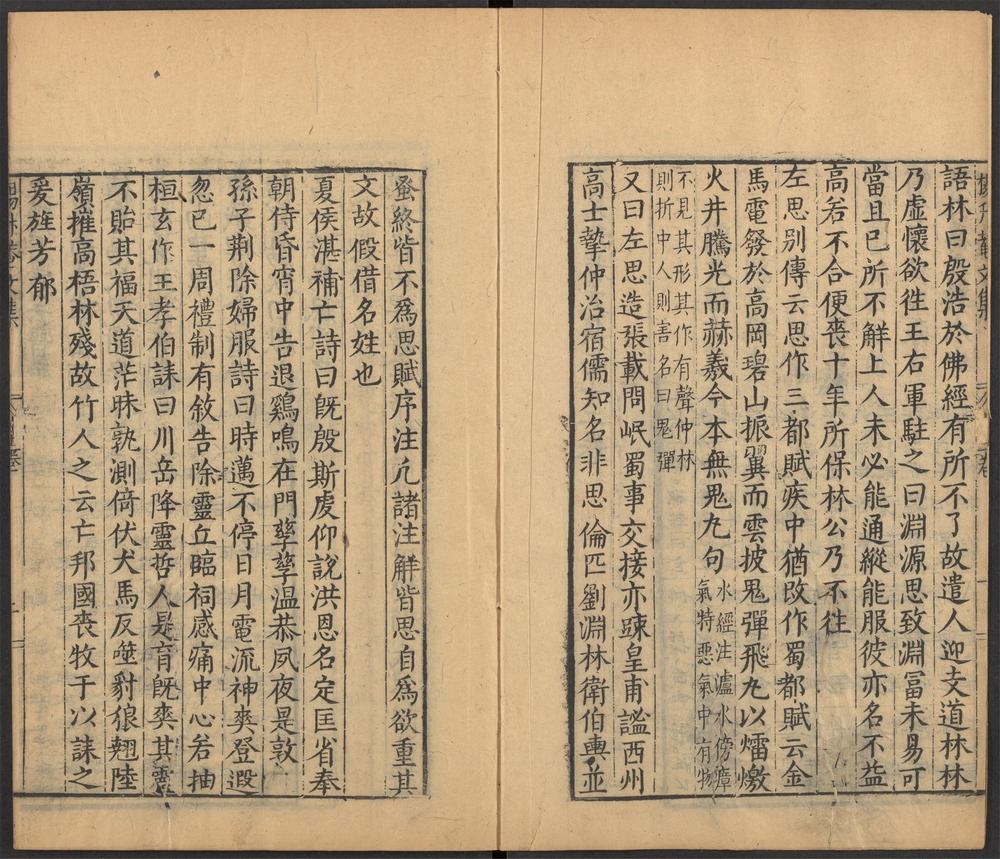 語林曰殷浩於佛經有所不了故遣人迎支道林林
乃虛懷欲往王右軍駐之曰淵源思致淵冨未易可
當且已所不觧上人未必能通縱能服彼亦名不益
高若不合便喪十年所保林公乃不往
左思别傳云思作三都賦疾中猶改作蜀都賦云金
馬電發於高岡碧山振翼而雲披鬼彈飛丸以㸌燩
火井騰光而赫羲今本無鬼丸句
水經注瀘水傍瘴
氣特悪氣中有物
不見其形其作有聲仲林
則折中人則害名曰鬼彈
又曰左思造張載問岷蜀事交接亦踈皇甫謐西州
高士摯仲治宿儒知名非思倫匹劉淵林衛伯輿並
蚤終皆不爲思賦序注凢諸注觧皆思自爲欲重其
文故假借名姓也
夏侯湛補亡詩曰旣殷斯虔仰說洪恩名定匡省奉
朝侍昏宵中告退鷄鳴在門孳孳温恭夙夜是敦
孫子荆除婦服詩曰時邁不停日月電流神爽登遐
忽已一周禮制有敘告除靈丘臨祠感痛中心若抽
桓玄作王孝伯誄曰川岳降靈哲人是育旣爽其靈
不貽其福天道茫昧孰測倚伏犬馬反噬豺狼翹陸
嶺摧高梧林殘故竹人之云亡邦國喪牧于以誄之
爰旌芳郁